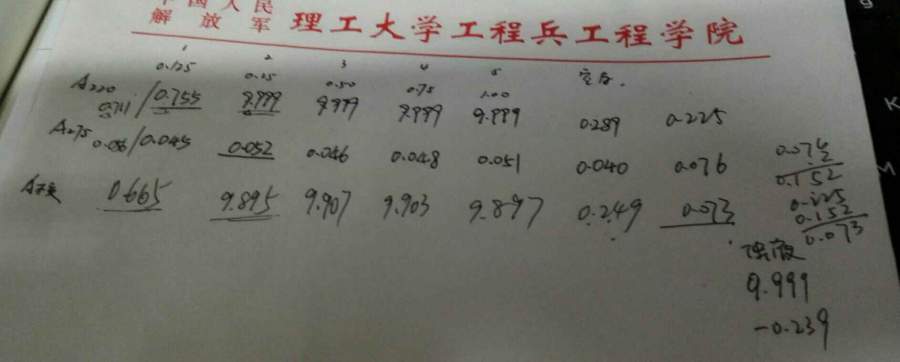 中国人民
解放军 理工大学工程兵工程学院
1 2 3 4 5
0.125 0.25 0.50 0.75 1.00 空白.
A220 0.711/0.755 9.999 9.999 9.999 9.999 0.289 0.225
A275 0.086/0.045 0.052 0.046 0.048 0.051 0.040 0.076
0.665 9.895 9.907 9.903 9.897 0.249 0.073
0.076
2
0.152
0.225
0.152
0.073
9.999
-0.239
K
M